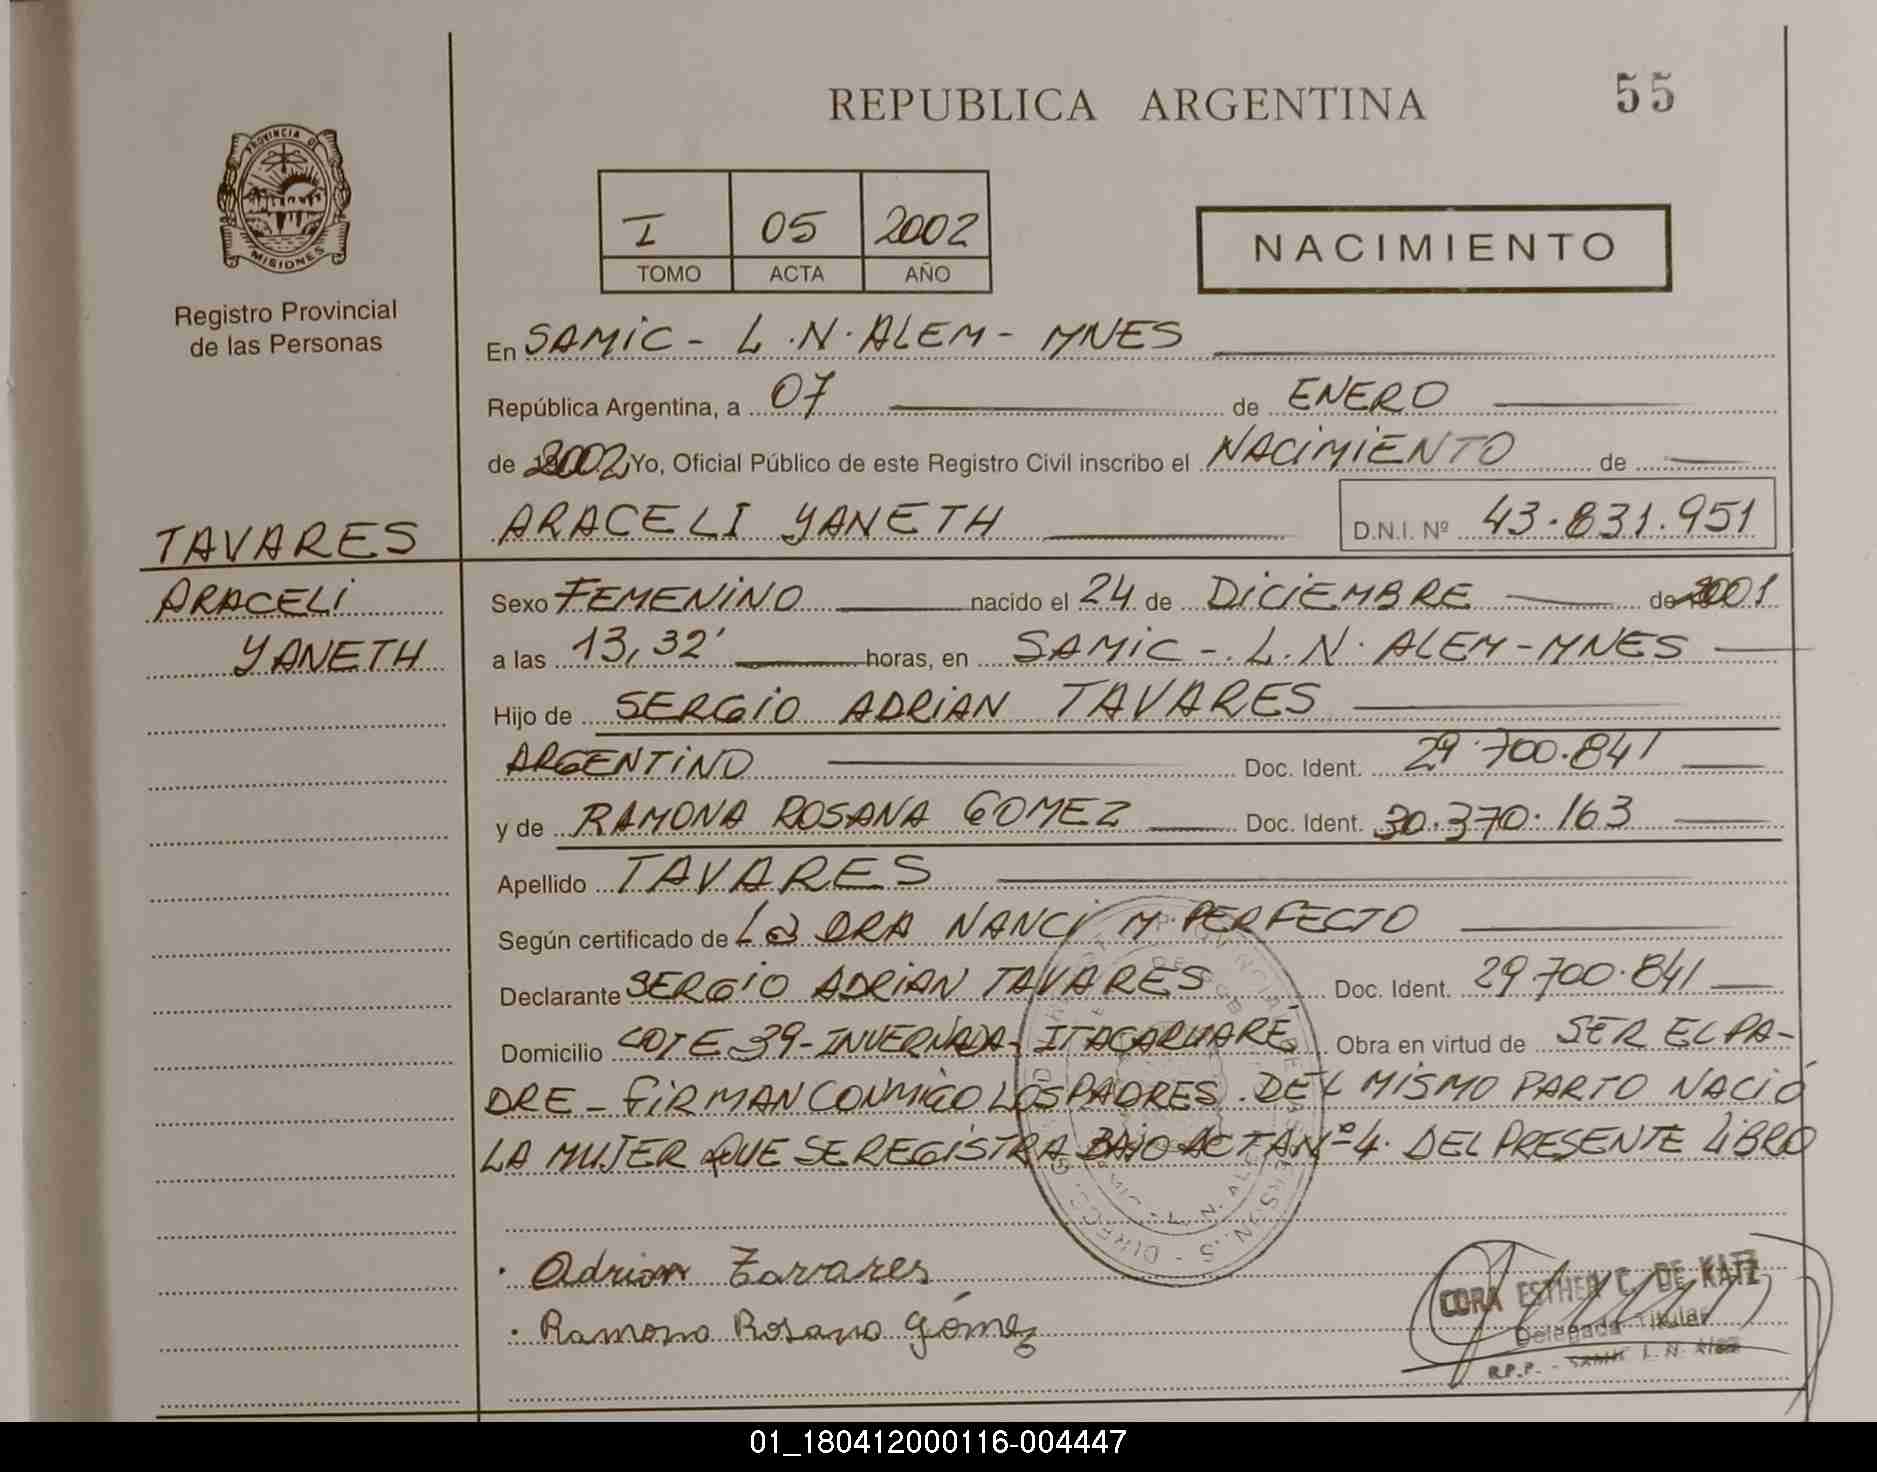 REPUBLICA ARGENTINA
55
PROVINCIA DE
MISIONES
Registro Provincial
de las Personas
I 05 2002
TOMO ACTA AÑO
NACIMIENTO
En SAMIC - L.N. ALEM - MNES
República Argentina, a 07 de ENERO
de 2002 Yo, Oficial Público de este Registro Civil inscribo el NACIMIENTO de
ARACELI YANETH D.N.I. Nº 43.831.951
TAVARES
ARACELI
YANETH
Sexo FEMENINO nacido el 24 de DICIEMBRE de 2001
a las 13,32' horas, en SAMIC -. L.N. ALEM - MNES
Hijo de SERGIO ADRIAN TAVARES
ARGENTINO Doc. Ident. 29.700.841
y de RAMONA ROSANA GOMEZ Doc. Ident. 30.370.163
Apellido TAVARES
Según certificado de La DRA NANCI M. PERFECTO
Declarante SERGIO ADRIAN TAVARES Doc. Ident. 29.700.841
Domicilio LOTE 39 - INVERNADA - ITACARUARÉ Obra en virtud de SER EL PA-
DRE - FIRMAN CONMIGO LOS PADRES. DEL MISMO PARTO NACIÓ
LA MUJER QUE SE REGISTRA BAJO ACTA Nº 4. DEL PRESENTE LIBRO
. Adrian Tavares
. Ramona Rosana Gómez
CORA ESTHER C. DE KATZ
Delegada Titular
R.P.P. - SAMIC L. N. Alem
01_180412000116-004447